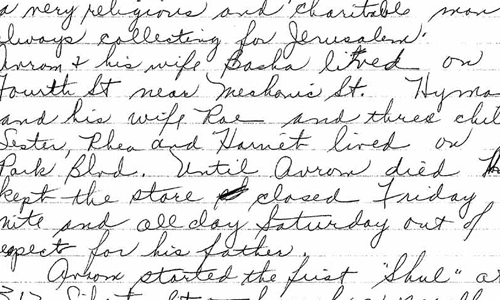 a very religious and charitable man
always collecting for Jerusalem.
Avrom & his wife Basha lived on
Fourth St near Mechanic St. Hyman
and his wife Rae and three chil
Sester, Rhea and Harriet lived on
Park Blvd. Until Avrom died H
kept the store closed Friday
nite and all day Saturday out of
respect for his father.
Avrom started the first "Shul" a